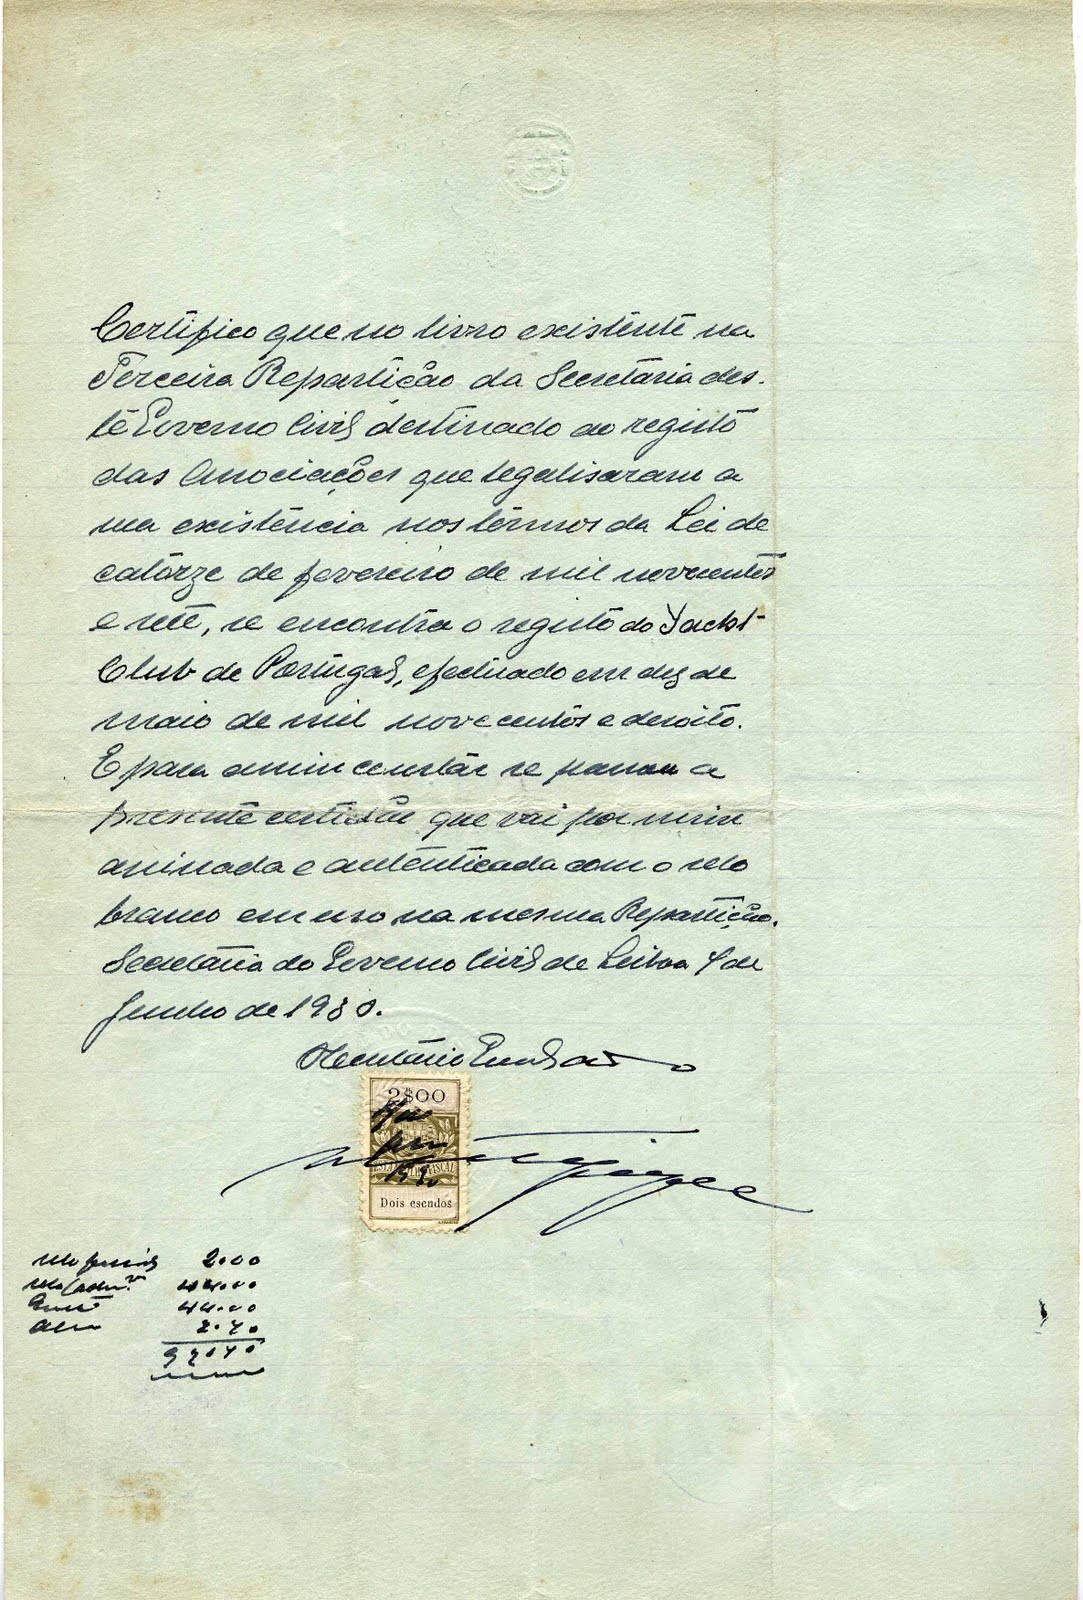 Certifico que no livro existente na
Terceira Repartição da Secretaria des-
te Governo Civil destinado ao registo
das Associações que legalisaram a
sua existência nos têrmos da Lei de
catorze de fevereiro de mil novecentos
e sete, se encontra o registo do Yacht-
Club de Portugal, efectuado em dez de
maio de mil novecentos e desoito.
E para assim constar se passou a
presente certidão que vai por mim
assinada e autênticada com o selo
branco em uso na mesma Repartição.
Secretaria do Governo Civil de Lisboa 4 de
Junho de 1930.
O Secretário
2$00
FISCAL
Dois escudos
selo 2.00
selo 44.00
44.00
2.40
92.40